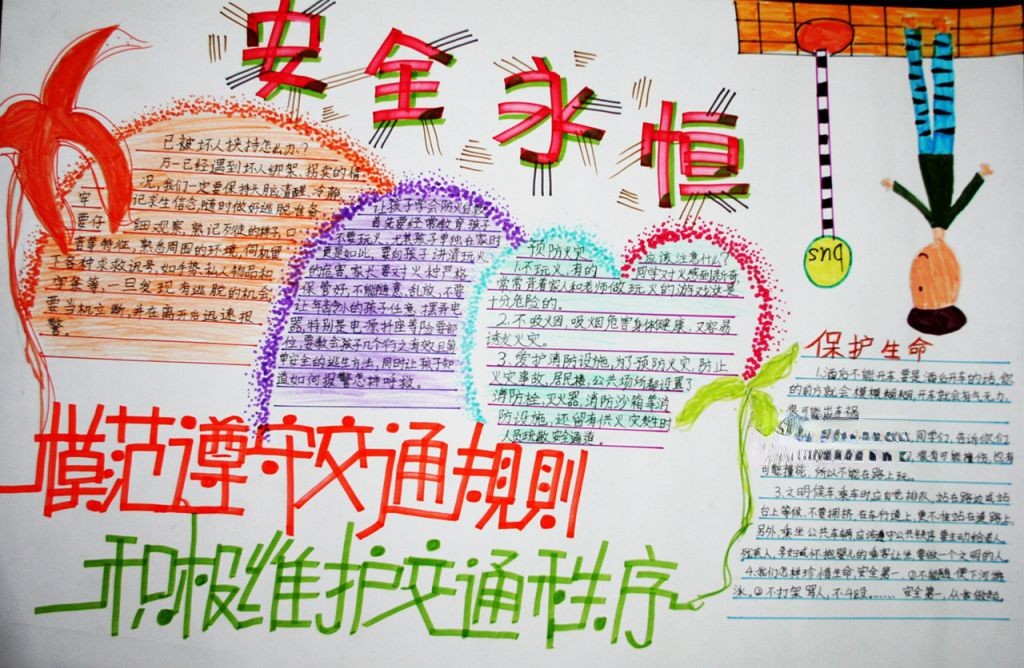 安全永恒
已被坏人挟持怎么办?
万一已经遇到坏人绑架、拐卖的情
况,我们一定要保持头脑清醒、冷静,
牢记求生信念,随时做好逃脱准备
要仔细观察、熟记歹徒的样子、口
音等特征,熟悉周围的环境,伺机留
下各种求救讯号,如手势、私人物品和
字条等,一旦发现有逃脱的机会
要当机立断,并在离开后迅速报
警。
让孩子学会防火自救
首先要经常教育孩子
不要玩火,尤其孩子单独在家时
更是如此,要向孩子讲清玩火
的危害,家长要对火种严格
保管好,不能随意乱放,不要
让年幼的孩子任意摆弄电
器,特别是电源插座等险要部
位,要教会孩子几个行之有效且简
单安全的逃生方法,同时让孩子知
道如何报警怎样呼救。
预防火灾应该注意什么?
1.不玩火,有的同学对火感到新奇
常常背着家人和老师做玩火的游戏,这是
十分危险的。
2.不吸烟,吸烟危害身体健康,又容易
诱发火灾。
3.爱护消防设施,为了预防火灾,防止
火灾事故,居民楼、公共场所都设置了
消防栓、灭火器、消防沙箱等消
防设施,还留有供火灾发生时
人员疏散安全通道。
模范遵守交通规则
积极维护交通秩序
bus
保护生命
1.酒后不能开车,要是酒后开车的话,你
的前方就会模模糊糊,开车就会有气无力,
很可能出车祸
同学们,告诉你们
很有可能撞伤,也有
可能撞死,所以不能在路上玩。
3.文明候车,乘车时应自觉排队,站在路边或站
台上等候,不要拥挤,在车行道上,更不准站在道路上,
另外,乘坐公共车辆,应该遵守公共秩序要主动给老人、
残疾人、孕妇或怀抱婴儿的乘客让坐,要做一个文明的人。
4.我们怎样珍惜生命,安全第一,①不能随便下河游
泳,②不打架骂人,不斗殴,……安全第一,从我做起。